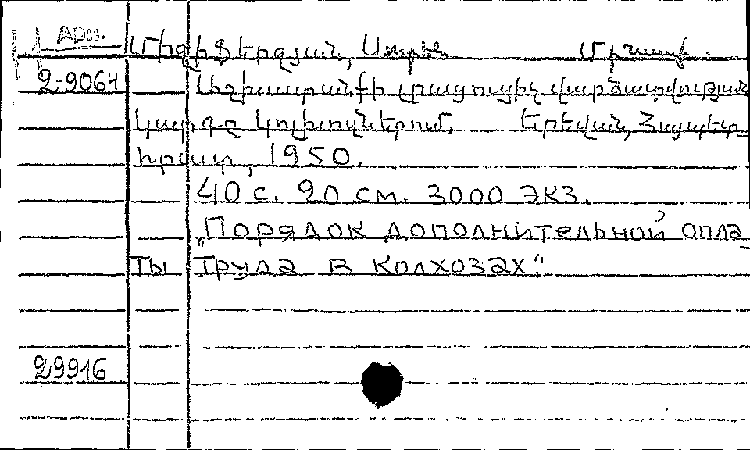 Арм.
2-9064
Աշխատանքի լրացուցիչ վարձատրության
կարգը կոլխոզներում. Երեվան, Հայպետ-
հրատ, 1950.
40 с. 20 см. 3000 экз.
„Порядок дополнительной опла-
ты труда в колхозах“
29916